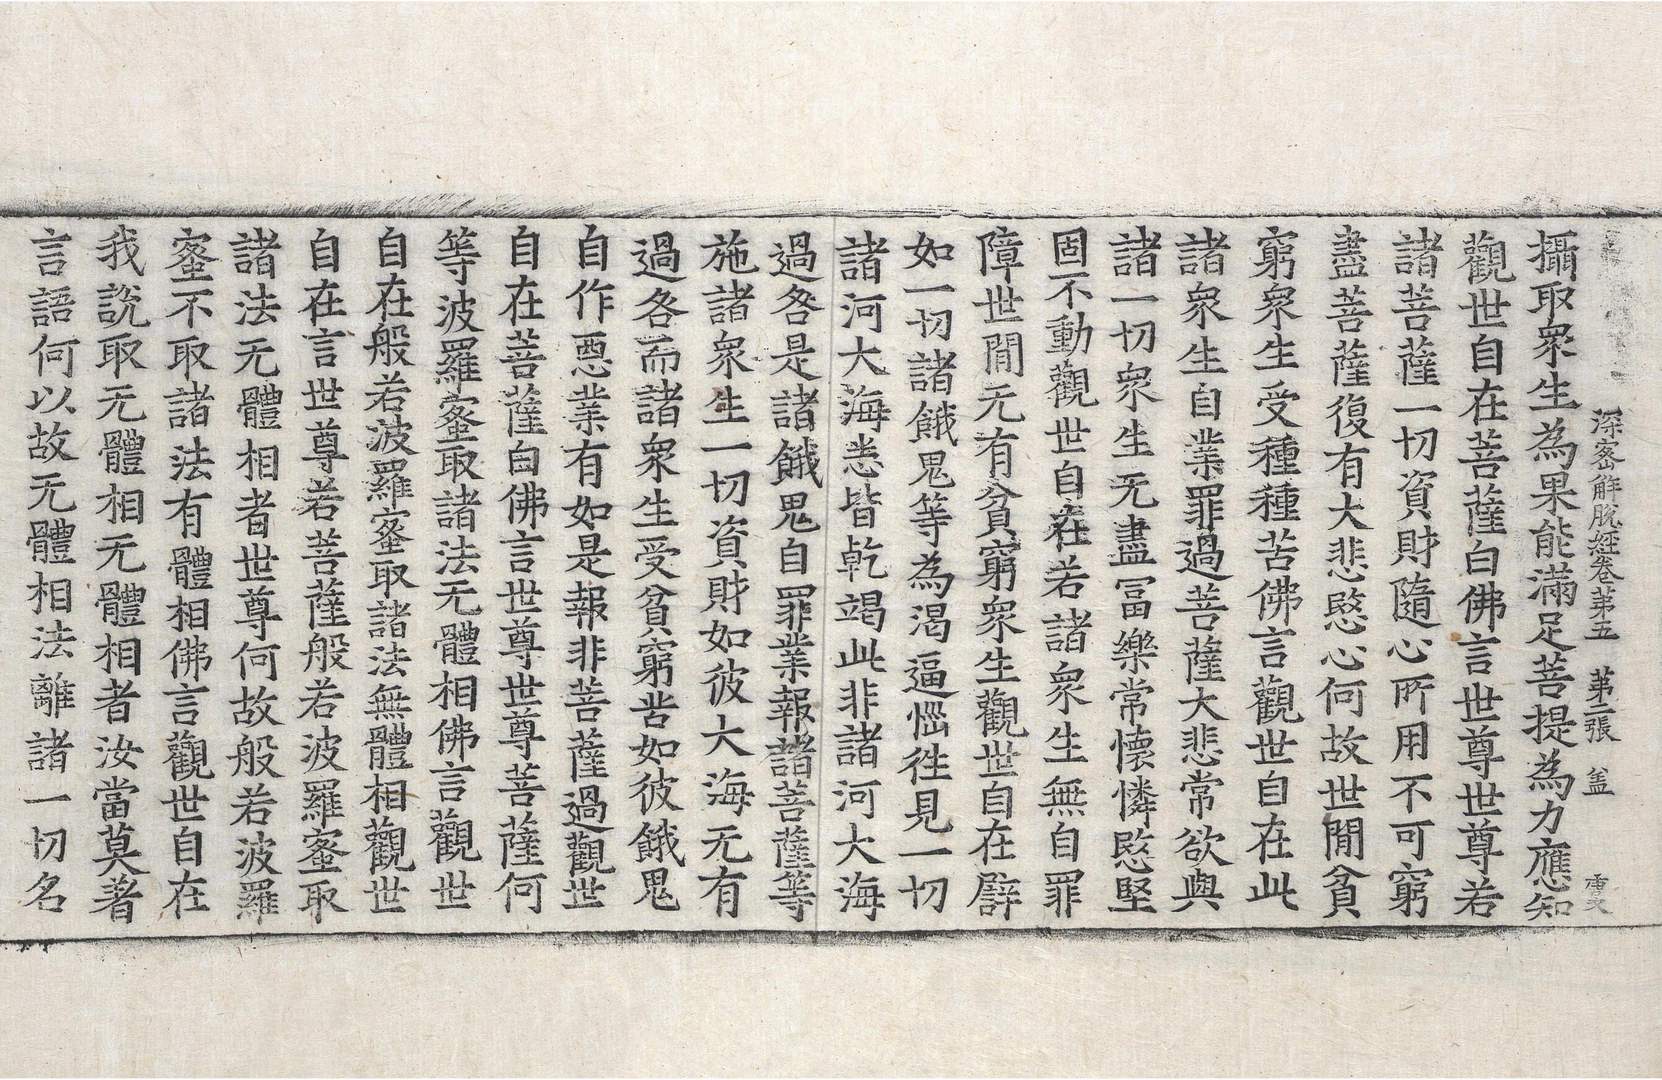 深密解脫經卷第五　第二張　盖
攝取衆生為果能滿足菩提為力應知
觀世自在菩薩白佛言世尊世尊若
諸菩薩一切資財隨心所用不可窮
盡菩薩復有大悲愍心何故世間貧
窮衆生受種種苦佛言觀世自在此
諸衆生自業罪過菩薩大悲常欲與
諸一切衆生无盡冨樂常懷憐愍堅
固不動觀世自在若諸衆生無自罪
障世間无有貧窮衆生觀世自在譬
如一切諸餓鬼等為渴逼惱徃見一切
諸河大海悉皆乾竭此非諸河大海
過咎是諸餓鬼自罪業報諸菩薩等
施諸衆生一切資財如彼大海无有
過各而諸衆生受貧窮苦如彼餓鬼
自作惡業有如是報非菩薩過觀世
自在菩薩白佛言世尊世尊菩薩何
等波羅蜜取諸法无體相佛言觀世
自在般若波羅蜜取諸法無體相觀世
自在言世尊若菩薩般若波羅蜜取
諸法无體相者世尊何故般若波羅
蜜不取諸法有體相佛言觀世自在
我說取无體相无體相者汝當莫著
言語何以故无體相法離諸一切名